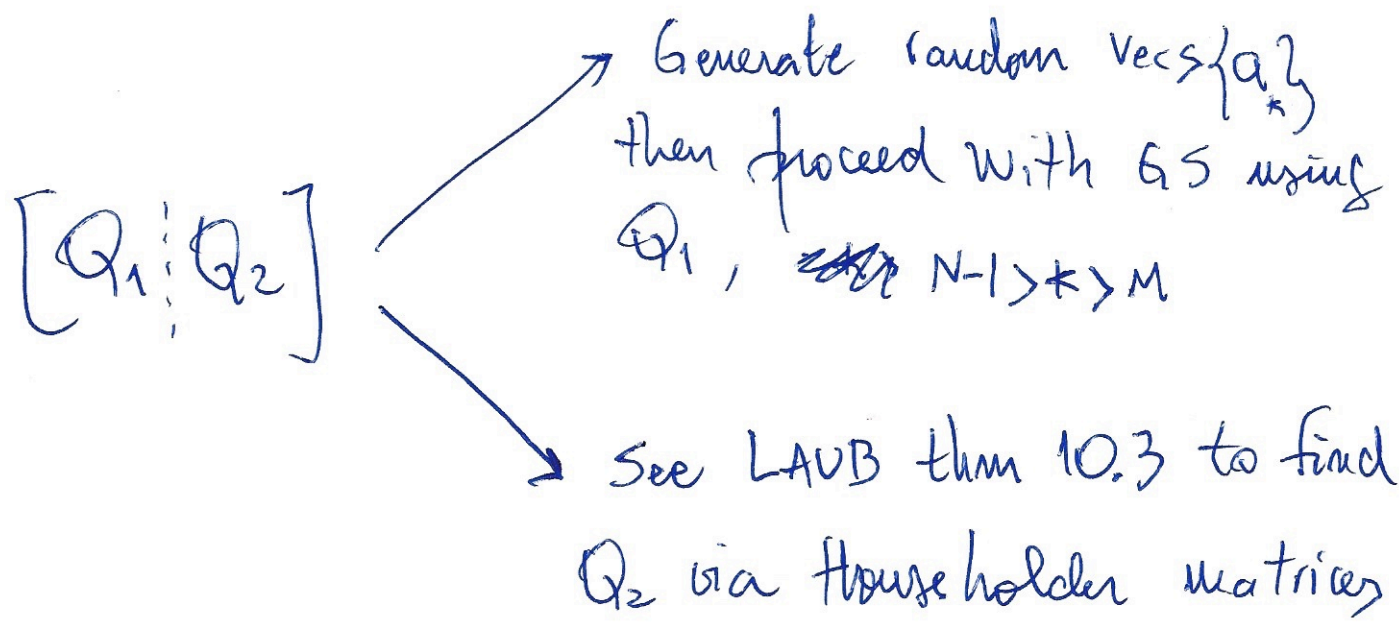 Generate random vecs {a_k}
then proceed with GS using
[Q₁ ⋮ Q₂]
Q₁, N-1>k>M
See LAUB thm 10.3 to find
Q₂ via Householder matrices